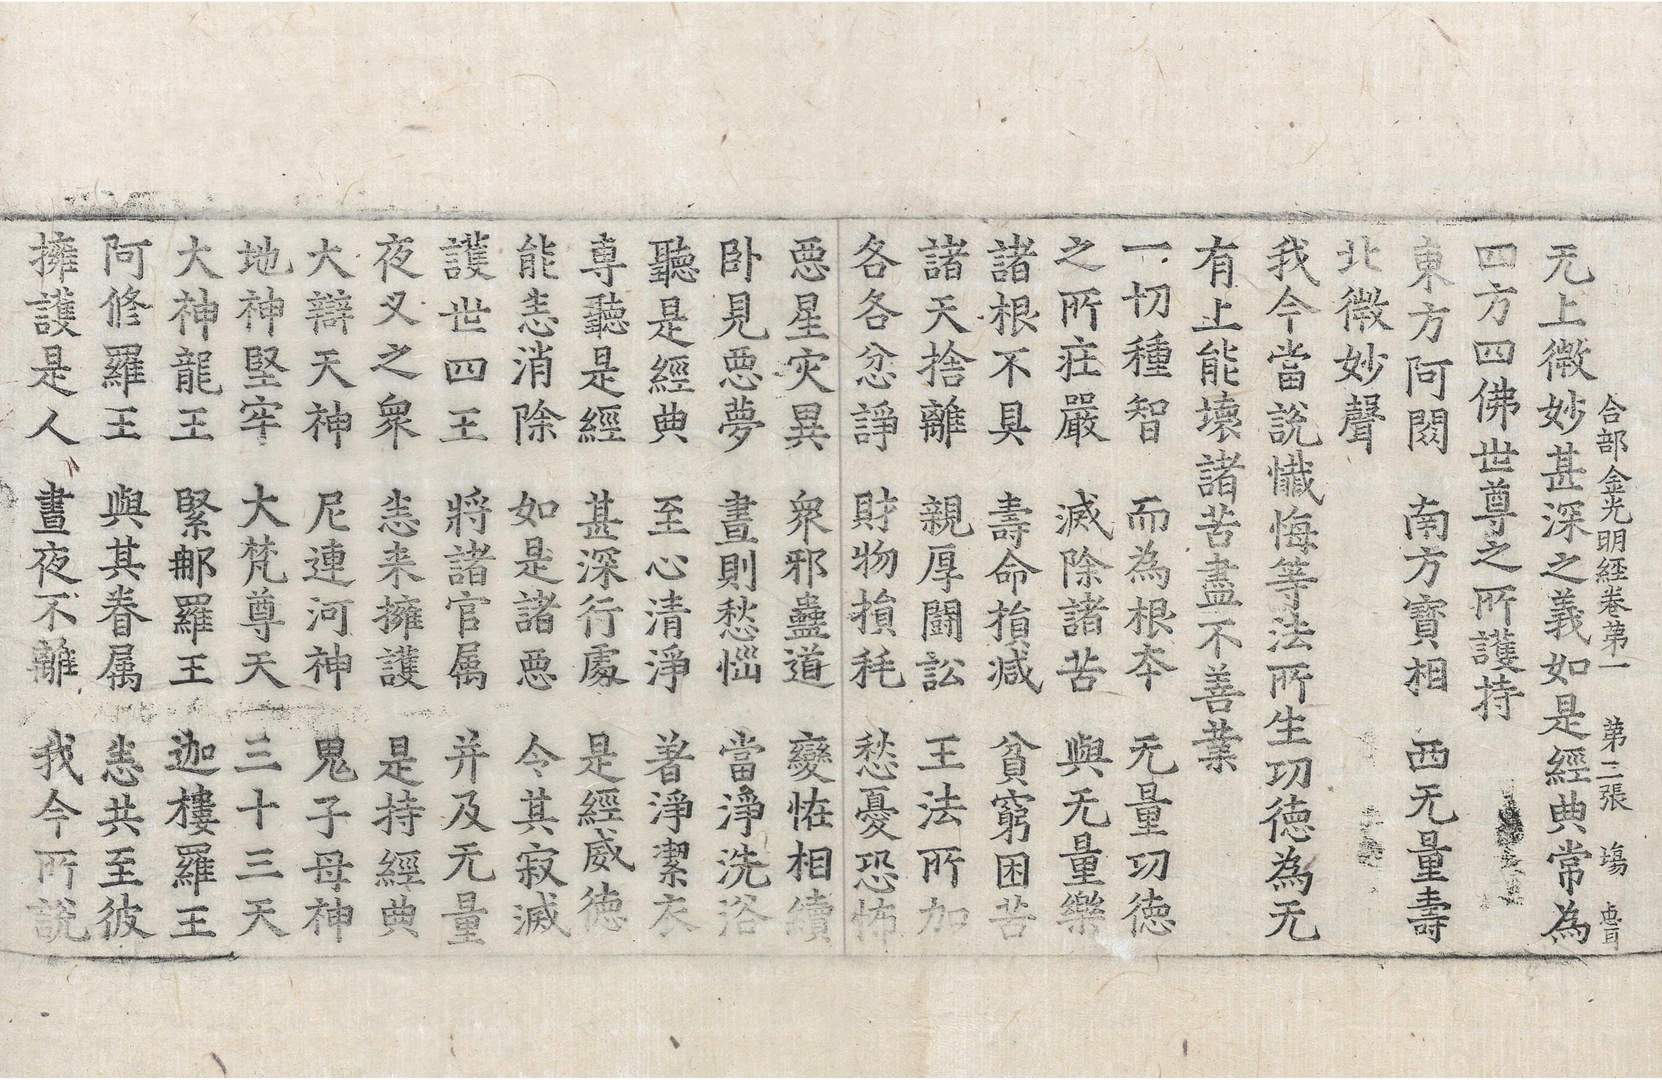 合部金光明經卷第一 第三張 塲
无上微妙甚深之義如是經典常為
四方四佛世尊之所護持
東方阿閦 南方寶相 西无量壽
北微妙聲
我今當說懺悔等法所生功德為无
有上能壞諸苦盡不善業
一切種智 而為根夲 无量功德
之所莊嚴 滅除諸苦 與无量樂
諸根不具 壽命損減 貧窮困苦
諸天捨離 親厚鬪訟 王法所加
各各忿諍 財物損耗 愁憂恐怖
惡星灾異 衆邪蠱道 變恠相續
卧見惡夢 晝則愁惱 當淨洗浴
聽是經典 至心清淨 著淨潔衣
專聽是經 甚深行處 是經威德
能悉消除 如是諸惡 令其寂滅
護世四王 將諸官属 并及无量
夜叉之衆 悉来擁護 是持經典
大辯天神 尼連河神 鬼子母神
地神堅牢 大梵尊天 三十三天
大神龍王 緊那羅王 迦樓羅王
阿修羅王 與其眷属 悉共至彼
擁護是人 晝夜不離 我今所說